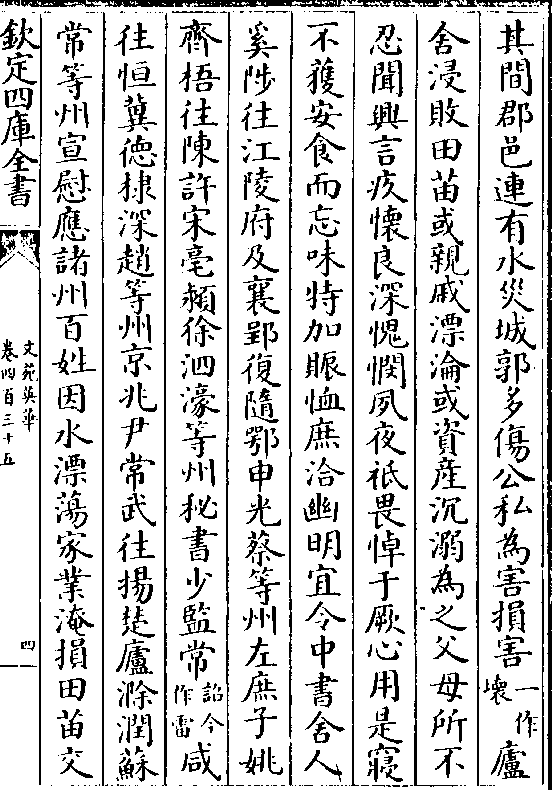 其間郡邑連有水災城郭多傷公私為害損害一作壞廬
舍浸敗田苗或親戚漂淪或資産沉溺為之父母所不
忍聞興言疚懷良深愧憫夙夜祗畏悼于厥心用是寢
不獲安食而忘味特加賑恤庶洽幽明宜令中書舍人
奚陟往江陵府及襄郢復隨鄂申光蔡等州左庶子姚
齊梧往陳許宋亳潁徐泗濠等州秘書少監常詔今作雷咸
往恒冀德棣深趙等州京兆尹常武往揚楚廬滁潤蘇
常等州宣慰應諸州百姓因水漂蕩家業淹損田苗交
欽定四庫全書
文苑英華
卷四百三十五
四